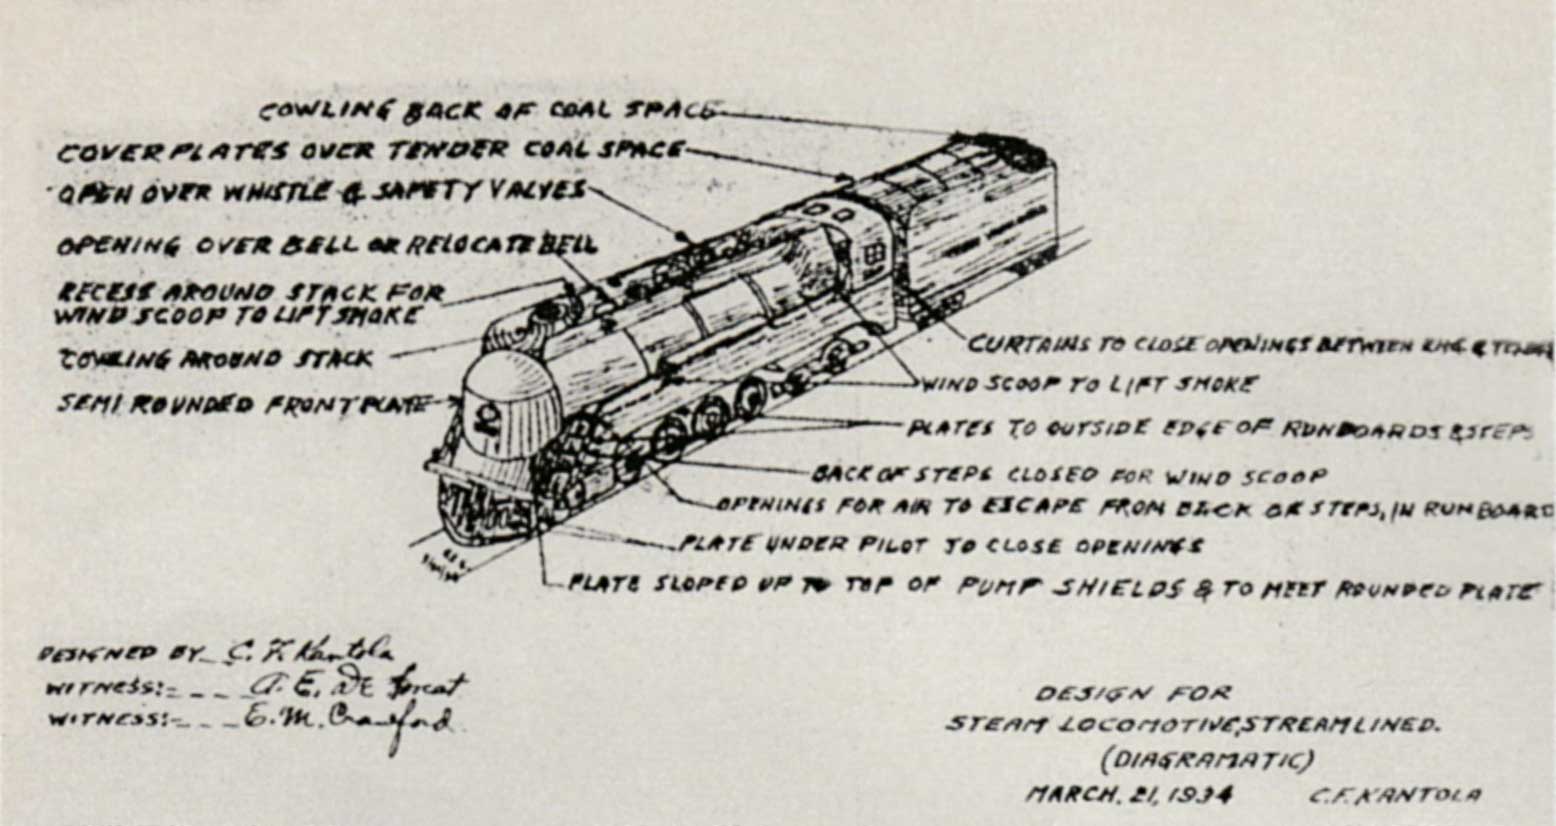 COWLING BACK OF COAL SPACE
COVER PLATES OVER TENDER COAL SPACE
OPEN OVER WHISTLE & SAFETY VALVES
OPENING OVER BELL OR RELOCATE BELL
RECESS AROUND STACK FOR
WIND SCOOP TO LIFT SMOKE
COWLING AROUND STACK
SEMI ROUNDED FRONT PLATE
CURTAINS TO CLOSE OPENINGS BETWEEN ENG & TENDER
WIND SCOOP TO LIFT SMOKE
PLATES TO OUTSIDE EDGE OF RUNBOARDS & STEPS
BACK OF STEPS CLOSED FOR WIND SCOOP
OPENINGS FOR AIR TO ESCAPE FROM BACK OF STEPS, IN RUNBOARD
PLATE UNDER PILOT TO CLOSE OPENINGS
PLATE SLOPED UP TO TOP OF PUMP SHIELDS & TO MEET ROUNDED PLATE
DESIGNED BY C. F. Kantola
WITNESS:- A. E. De Forest
WITNESS:- E. M. Crawford
DESIGN FOR
STEAM LOCOMOTIVE, STREAMLINED.
(DIAGRAMATIC)
MARCH, 21, 1934 C.F. KANTOLA